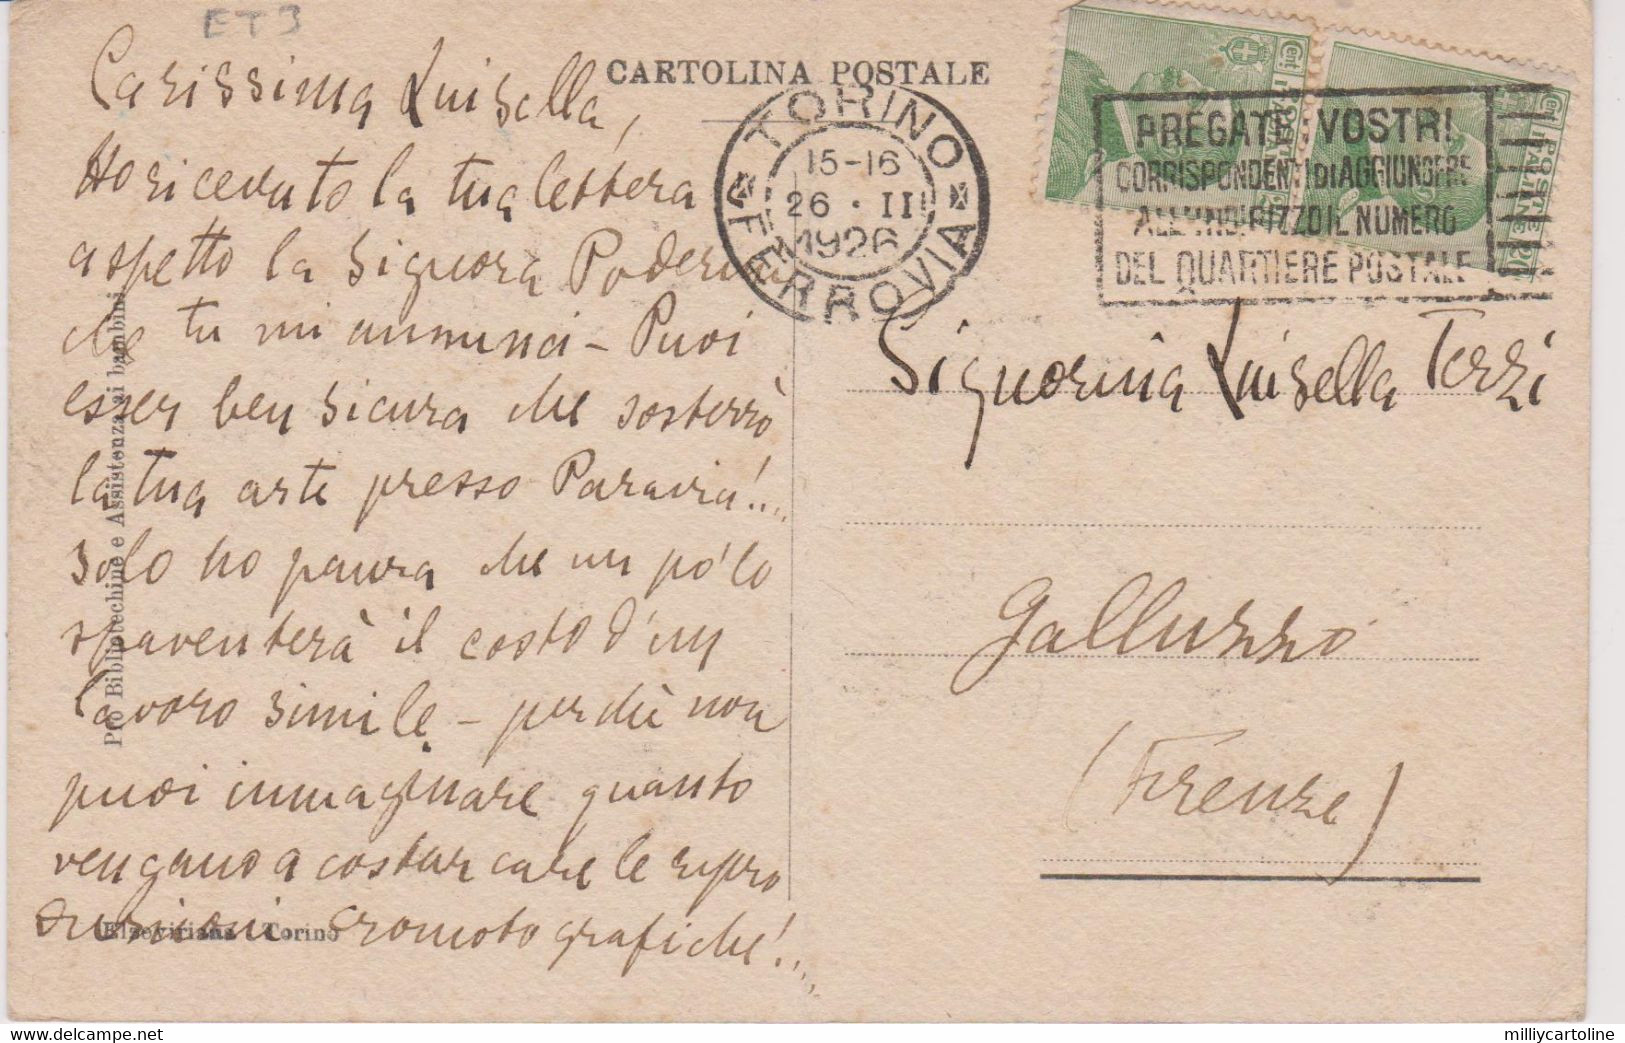 ET3
CARTOLINA POSTALE
Carissima Luisella,
Ho ricevuto la tua lettera
aspetto la Signora
che tu mi annunci - Puoi
esser ben sicura che sosterrò
la tua arte presso Paravia!...
Solo ho paura che un pò lo
spaventerà il costo d'un
lavoro simile - perchè non
puoi immaginare quanto
vengano a costar care le ripro
duzioni cromotografiche!...
Pro Bibliotechine e Assistenza ai bambini
Elzeviriana - Torino
TORINO
FERROVIA
15-16
26 · II
1926
PREGATE I VOSTRI
CORRISPONDENTI DI AGGIUNGERE
ALL'INDIRIZZO IL NUMERO
DEL QUARTIERE POSTALE
Cent.
POSTE ITALIANE
Cent.
POSTE ITALIANE
Signorina Luisella Terzi
Galluzzo
(Firenze)
delcampe.net
millycartoline